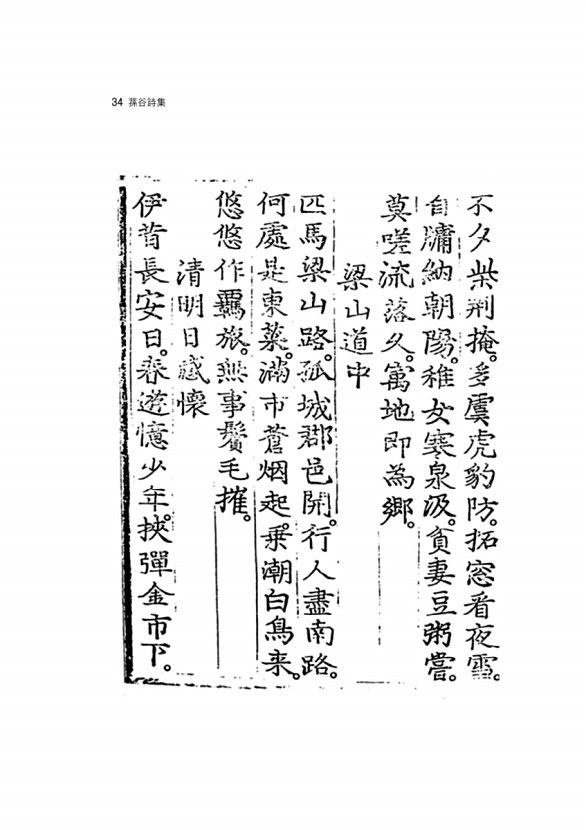 34 蓀谷詩集
不夕柴荆掩。多虞虎豹防。拓窓看夜雪。
自牖納朝陽。稚女寒泉汲。貧妻豆粥嘗。
莫嗟流落久。寓地即為鄉。
梁山道中
匹馬梁山路。孤城郡邑開。行人盡南路。
何處是東萊。滿市蒼烟起。乗潮白鳥来。
悠悠作羈旅。無事鬢毛摧。
清明日感懷
伊昔長安日。春遊憶少年。挾彈金市下。